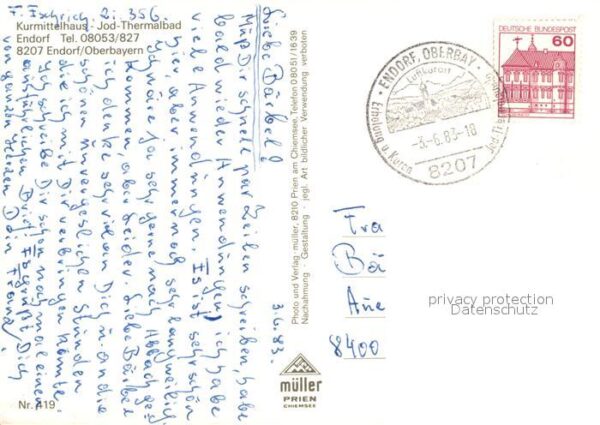 F. Fschrich Zi. 356.
Kurmittelhaus · Jod-Thermalbad
Endorf Tel. 08053/827
8207 Endorf/Oberbayern
3.6.83.
Lieb Bärbel!
Muß Dir schnell paar Zeilen schreiben, habe
bald wieder Anwendung, ich habe
viele Anwendungen. Es ist sehr schön
hier aber immer noch sehr langweilig.
Ich wäre ja sehr gerne nach Abbach ge-
kommen, aber leider. Liebe Bärbel
ich denke sehr viel an Dich u. an die
schönen unvergeslichen Stunden
die ich mit Dir verbringen konnte.
Ich schreibe Dir schon noch mal einen
ausführlichen Brief. Es grüßt Dich
von ganzen Herzen Dein Franz
Photo und Verlag müller, 8210 Prien am Chiemsee, Telefon 08051/1639
Nachahmung · Gestaltung · jegl. Art bildlicher Verwendung verboten
müller
PRIEN
CHIEMSEE
Nr. 419
ENDORF, OBERBAY.
Luftkurort
-3.-6.83-18
8207
Erholung u. Kuren
DEUTSCHE BUNDESPOST
60
Fra
Bä
Aue
8400
privacy protection
Datenschutz